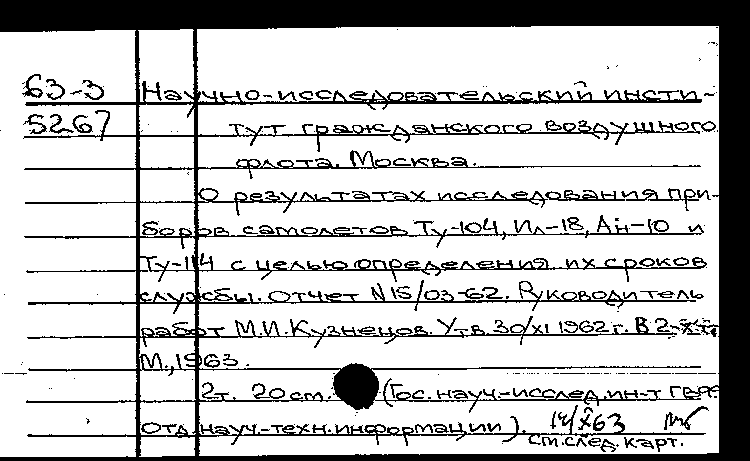 63-3 Научно-исследовательский инсти-
5267 тут гражданского воздушного
флота. Москва.
О результатах исследования при-
боров самолетов Ту-104, Ил-18, Ан-10 и
Ту-114 с целью определения их сроков
службы. Отчет N15/03-62. Руководитель
работ М.И. Кузнецов. Утв. 30/XI 1962 г. В 2-х
М., 1963.
2т. 20 см. (Гос. науч.-исслед. ин-т ГВФ.
Отд. науч.-техн. информации).
См. след. карт.